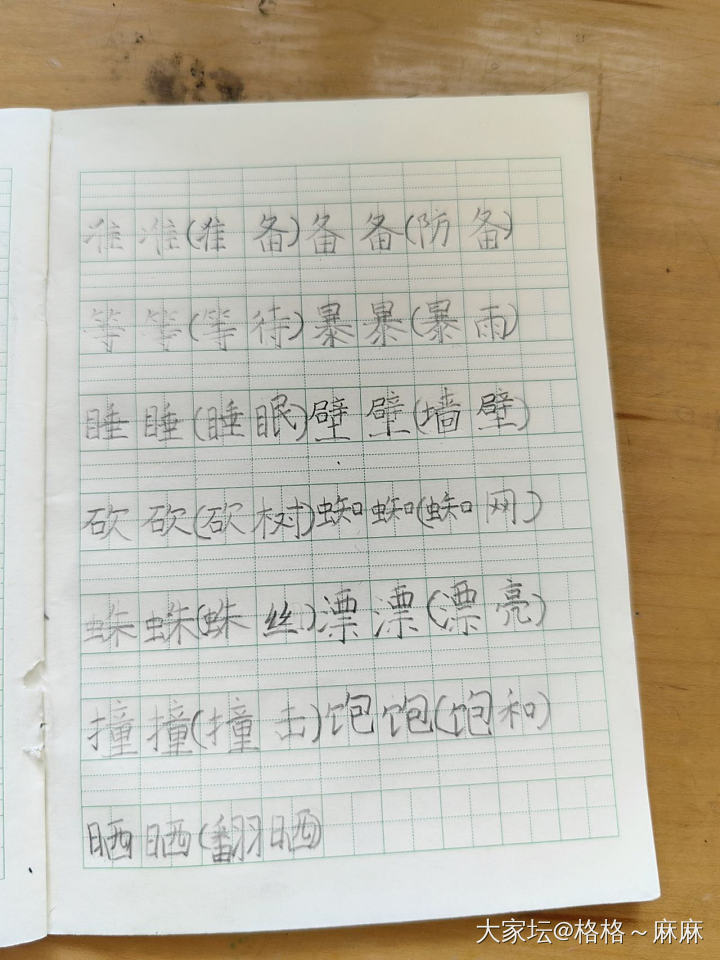 准准(准备)备备(防备)
等等(等待)暴暴(暴雨)
睡睡(睡眠)壁壁(墙壁)
砍砍(砍树)蜘蜘(蜘网)
蛛蛛(蛛丝)漂漂(漂亮)
撞撞(撞击)饱饱(饱和)
晒晒(翻晒)
大家坛@格格～麻麻